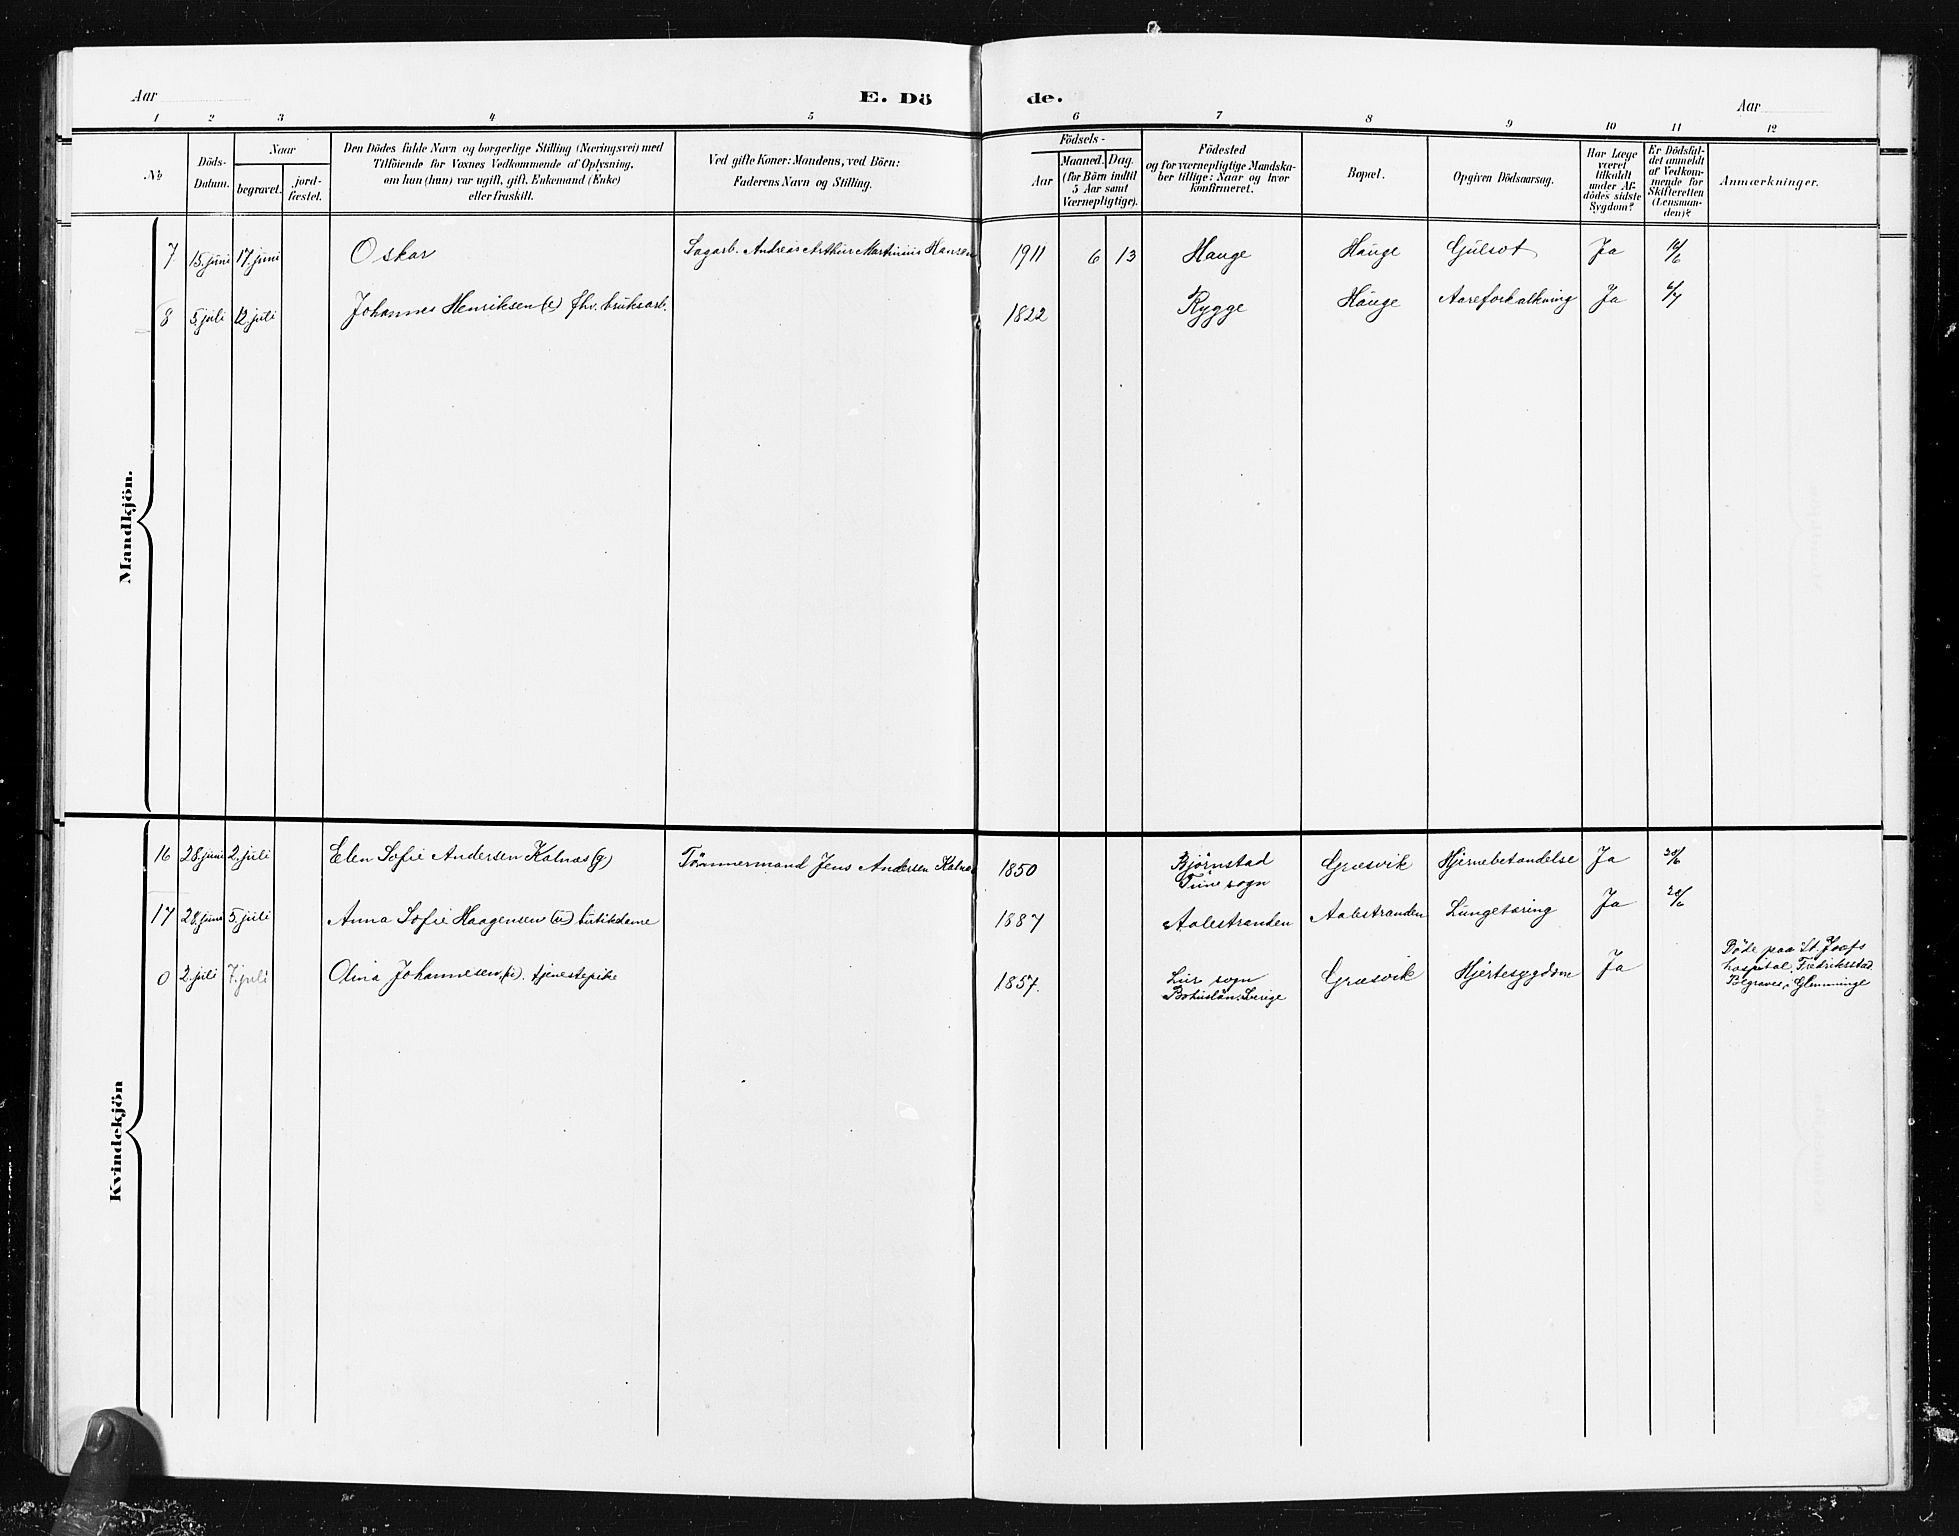 Aar
E. Dö
de.
Aar
1 2 3 4 5 6 7 8 9 10 11 12
No
Döds-
Datum.
Naar
begravet.
jord-
fæstet.
Den Dödes fulde Navn og borgerlige Stilling (Næringsvei) med
Tilföiende for Voxnes Vedkommende af Oplysning,
om hun (hun) var ugift, gift, Enkemand (Enke)
eller fraskilt.
Ved gifte Koner: Mandens, ved Börn:
Faderens Navn og Stilling.
Födsels-
Aar
Maaned. Dag.
(for Börn indtil
5 Aar samt
Værnepligtige).
Födested
og for værnepligtige Mandska-
ber tillige: Naar og hvor
konfirmeret.
Bopæl.
Opgiven Dödsaarsag.
Har Læge
været
tilkaldt
under Af-
dødes sidste
Sygdom?
Er Dödsfal-
det anmeldt
af Vedkom-
mende for
Skifteretten
(Lensman-
den)?
Anmærkninger.
Mandkjön.
7 15. juni 17. juni Oskar Sagarb. Andreas Arthur Martinius Hansen 1911 6 13 Hauge Hauge Gulsot Ja 16/6
8 5. juli 12. juli Johannes Henriksen (e) fhv. bruksarb. 1822 Rygge Hauge Aareforkalkning Ja 6/7
Kvindekjön
16 28. juni 2. juli Elen Sofie Andersen Kalnæs (g) Tømmermand Jens Andersen Kalnæs 1850 Bjørnstad Græsvik Hjernebetændelse Ja 28/6
Tune sogn
17 28. juni 5. juli Anna Sofie Haagensen (u) butikdame 1887 Aalestranden Aalestranden Lungetæring Ja 28/6
0 2. juli 7. juli Olina Johannesen, (u). tjenestepike 1857. Lur sogn Græsvik Hjertesygdom Ja
Bohuslän. Sverige
Døde paa St. Josefs
hospital, Fredriksstad.
Begraves i Glemminge